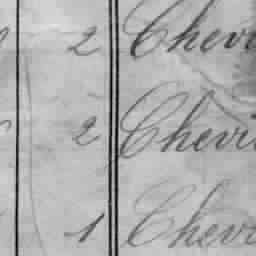 2 Chevi
2 Chevi
1 Chevi